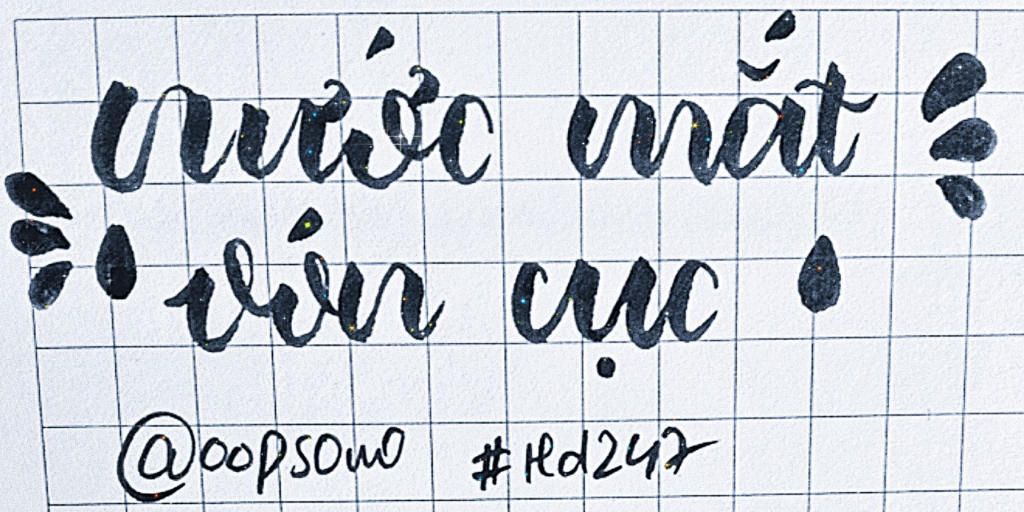 nước mắt
vón cục
@oopsono #Hd247